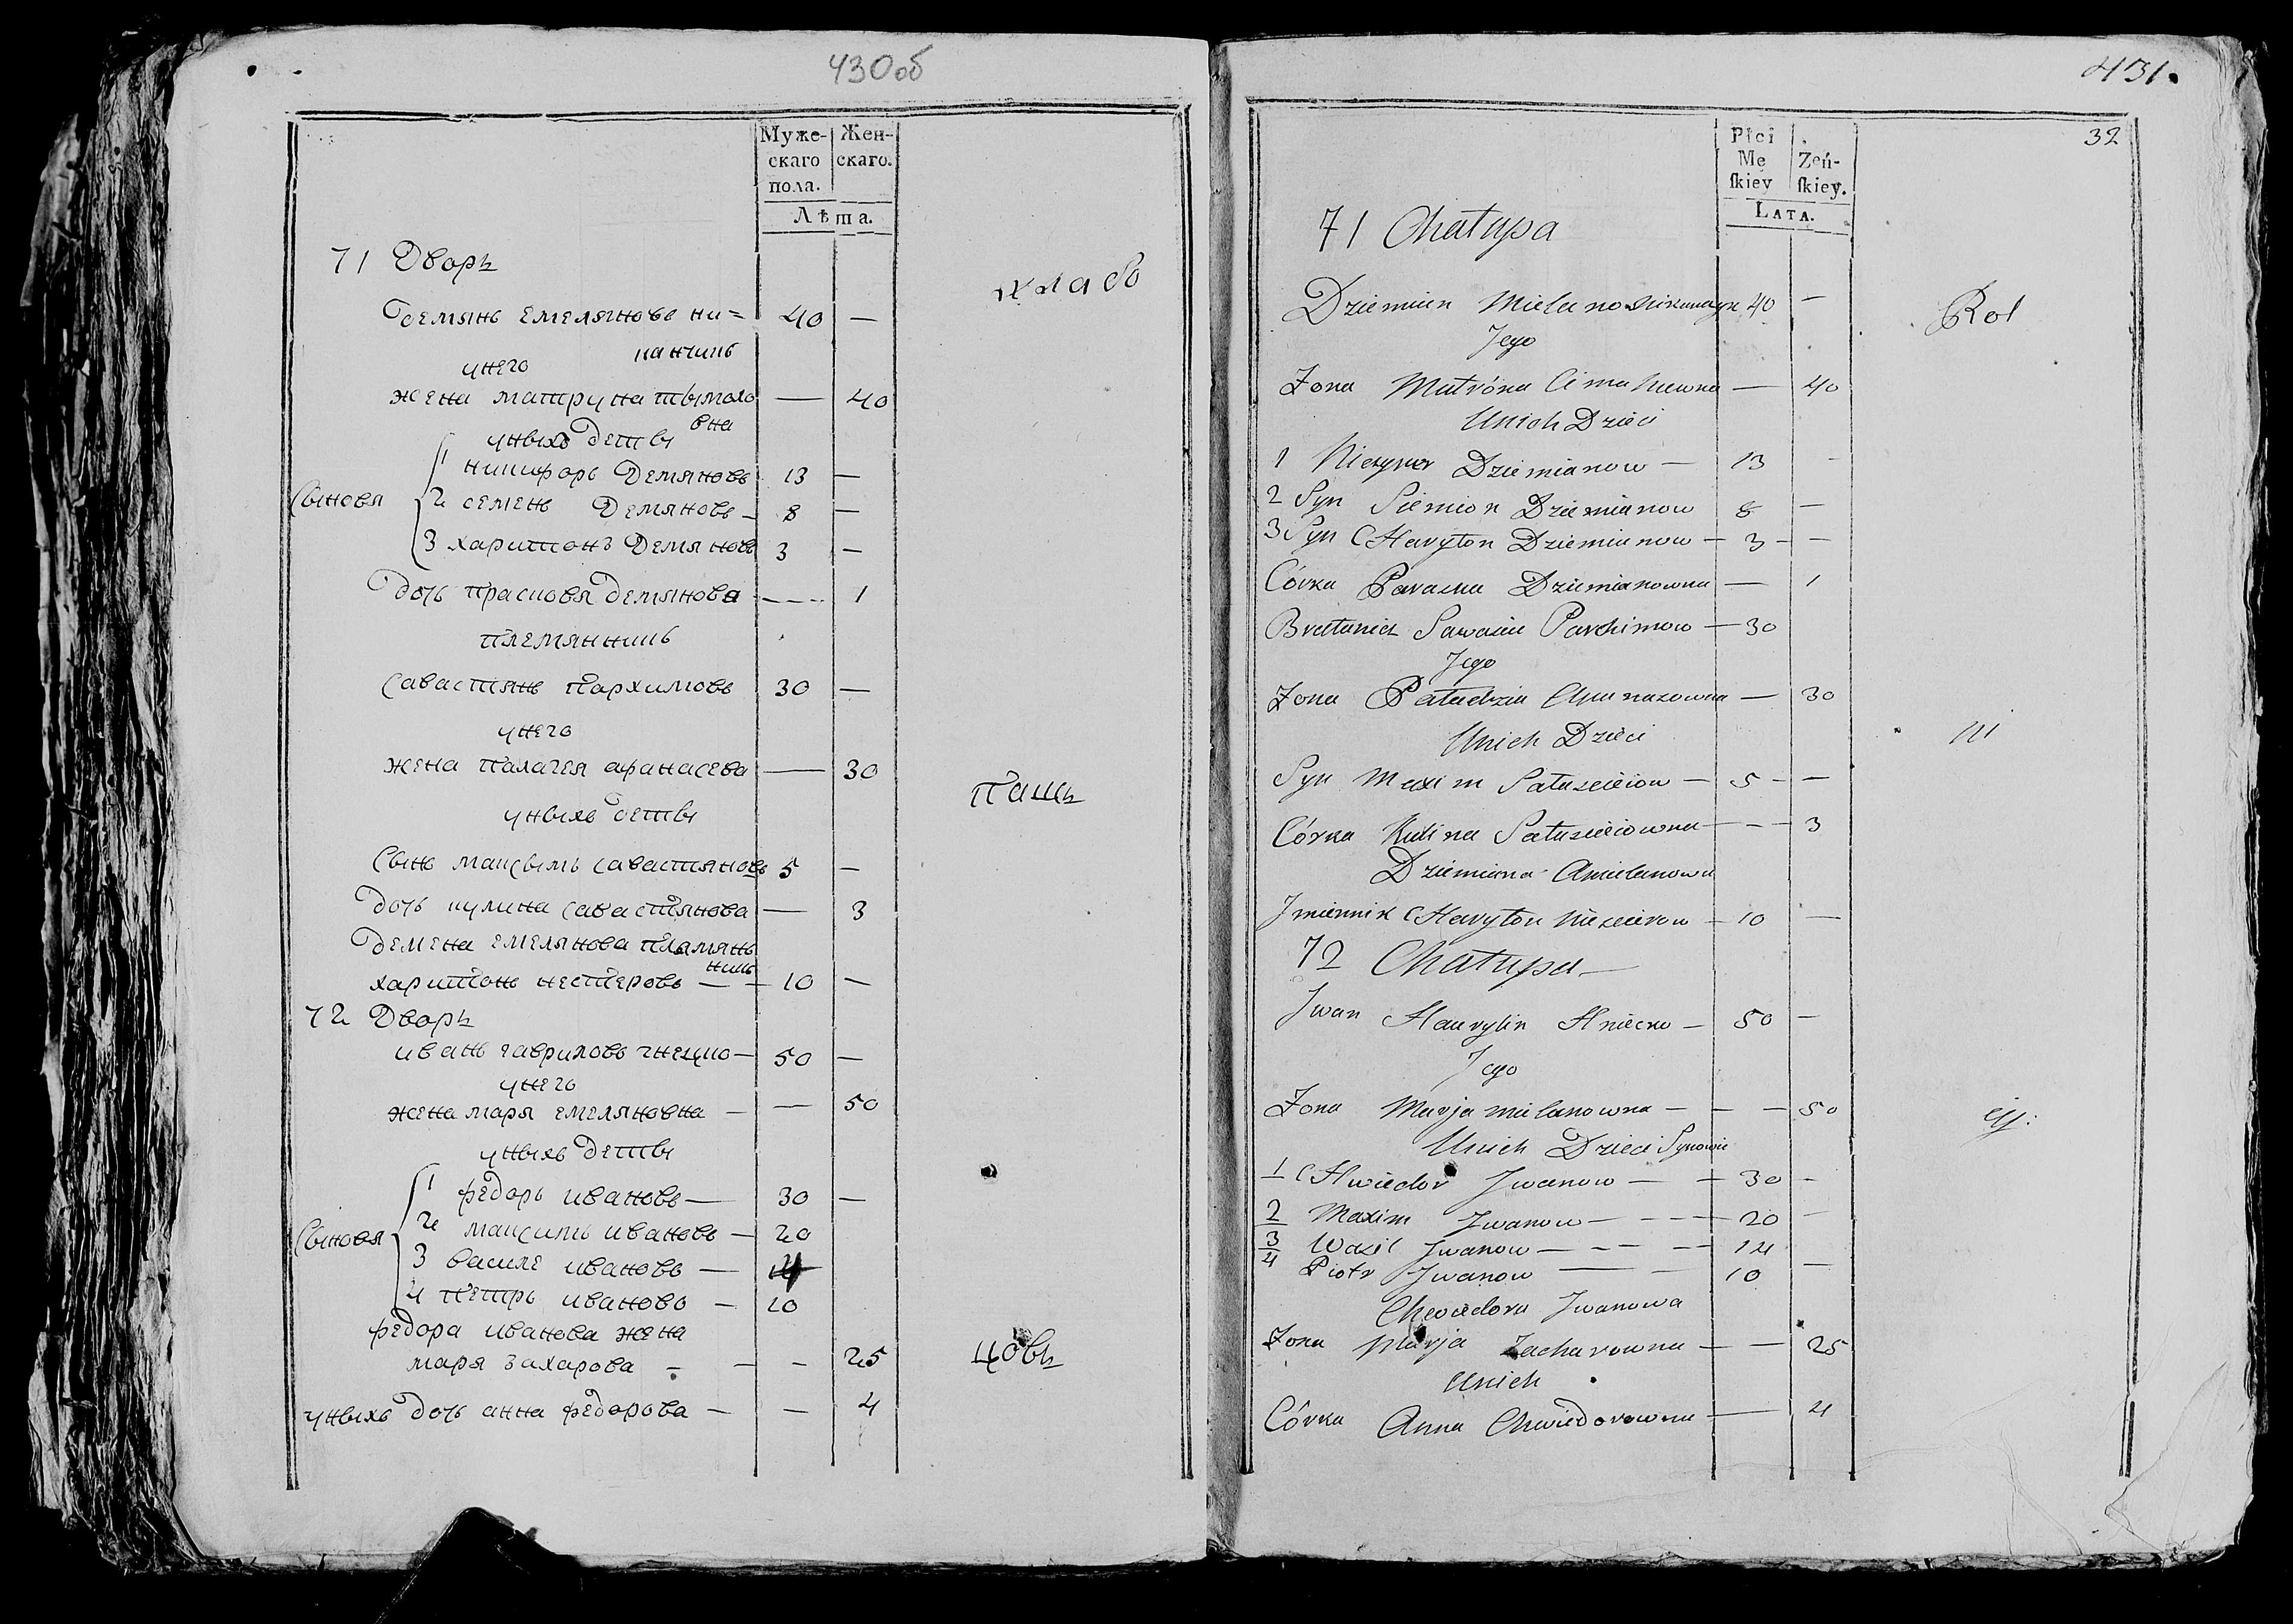 430об
Муже-
скаго
пола.
Жен-
скаго.
Лѣта.
71 Дворъ
демянъ емеляновъ ни= 40 —
канчикъ
унего
жена матруна тымохо — 40
вна
уныхъ деты
сыновя
1 никифоръ демяновъ 13 —
2 семенъ демяновъ — 8 —
3 харитонъ демяновъ 3 —
дочь прасковя демянова — 1
племянникъ
савастянъ пархимовъ 30 —
унего
жена палагея афанасева — 30
уныхъ деты
сынъ максымъ савастяновъ 5 —
дочь кулина савастянова — 3
демена емелянова плямянъ
никъ
харитонъ нестеровъ — 10 —
72 Дворъ
иванъ гавриловъ гнецко — 50 —
унего
жена маря емеляновна — — 50
уныхъ деты
сыновя
1 федоръ ивановъ — 30 —
2 максимъ ивановъ — 20
3 василе ивановъ — 14
4 петръ ивановъ — 10
федора иванова жена
маря захарова — — — 25
уныхъ дочь анна федорова — — 4
пашъ
цовъ
431.
32
Płci
Mę
skiey
Żeń-
skiey.
LATA.
71 Chatupa
Dziemian 40 —
Jego
Zona Matróna — 40
Unich Dzieci
1 Dziemianow — 13 -
2 Syn Siemion Dziemianow 8 —
3 Syn CHaryton Dziemianow — 3 - —
Córka Paraska Dziemianowna — 1
Bratanich Parchimow — 30
Jego
Zona — 30
Unich Dzieci
Syn Maxim — 5 - —
Córka Kulina — - — 3
Dziemiana Amielanowa
CHaryton — 10 —
72 Chatupa —
Jwan Haurylin Hniecko — 50 —
Jego
Zona Marja mielanowna — — — 50
Unich Dzieci Synowie
1 CHwiedor Jwanow — — 30 -
2 Maxim Jwanow — - — — 20 —
3 Wasil Jwanow — - — — 14
4 Piotr Jwanow — — 10 —
Chwiedora Jwanowa
Zona Marja Zacharowna — — 25
Unich
Córka Anna Chwiedorowna — 4
Rol
ni
cy: